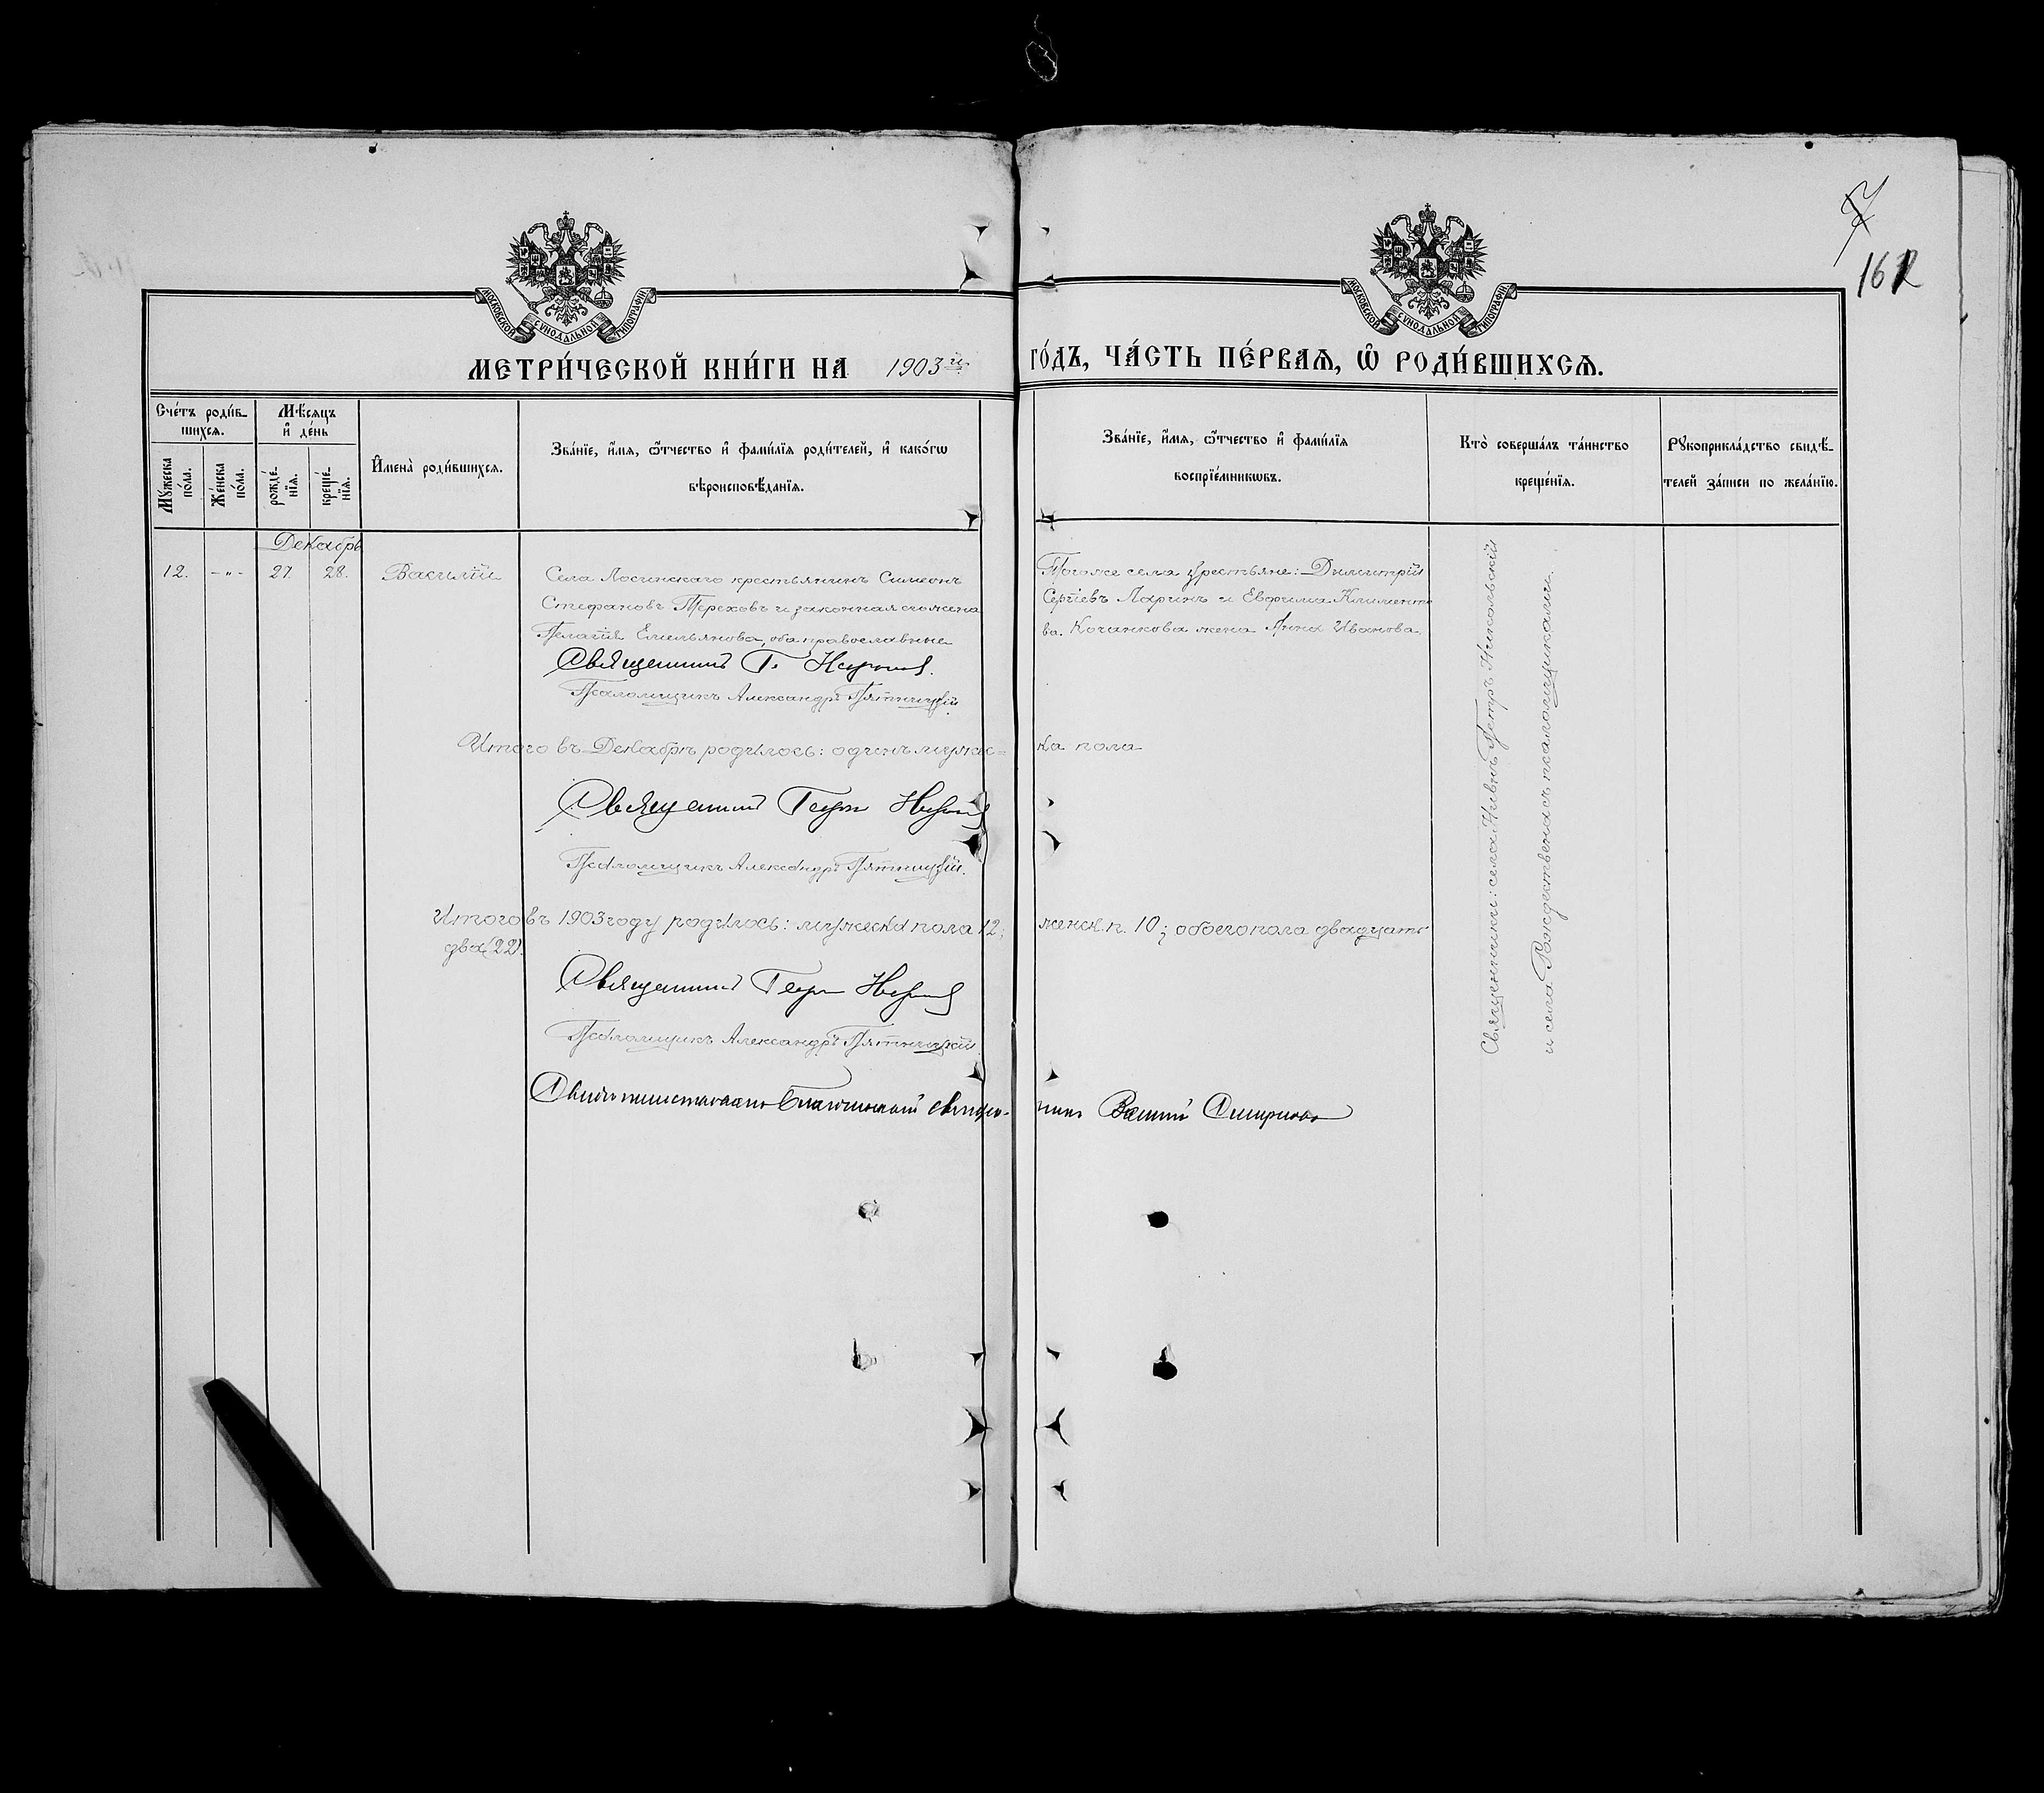 7
162
МОСКОВСКОЙ СѴНОДАЛЬНОЙ ТИПОГРАФІИ
МОСКОВСКОЙ СѴНОДАЛЬНОЙ ТИПОГРАФІИ
МЕТРИ́ЧЕСКОЙ КНИ́ГИ НА 1903й ГО́ДЪ, ЧА́СТЬ ПЕ́РВАЯ, Ѽ РОДИ́ВШИХСЯ.
Сче́тъ роди́в-
шихся.
Мꙋ́жеска по́ла.
Же́нска по́ла.
Мѣ́сяцъ
и҆ де́нь
рожде́-
нїя.
креще́-
нїя.
И҆мена̀ роди́вшихся.
Зва́нїе, и҆́мя, ѻ҆́тчество и҆ фами́лїя роди́телей, и҆ како́гѡ
вѣроисповѣ́данїя.
Зва́нїе, и҆́мя, ѻ҆́тчество и҆ фами́лїя
воспрїе́мникѡвъ.
Кто̀ соверша́лъ та́инство
креще́нїя.
Рꙋкоприкла́дство свидѣ́-
телей за́писи по жела́нїю.
Декабрь
12. -"- 27. 28. Василій
Села Лосинскаго крестьянинъ Симеонъ
Стефановъ Тереховъ и законная его жена
Пелагія Емельянова, оба православные
Священникъ Г.
Псаломщикъ Александръ Пятницкій
Тогоже села крестьяне: Димитрій
Сергіевъ Ларинъ и Евфима Климентова
ва. Кочанкова жена Анна Иванова.
Священники: села Нивнъ Петръ Никольскій
и села Рождествена съ псаломщиками.
Итого въ Декабрѣ родилось: одинъ мужес-
ка пола
Священникъ Георгій
Псаломщикъ Александръ Пятницкій.
Итого въ 1903 году родилось: мужеска пола 12; женск. п. 10; обоего пола двадцать
два (22).
Священникъ Георгій
Псаломщикъ Александръ Пятницкій
Свидѣтельствовалъ Благочинный священ-
никъ Василій Смирновъ